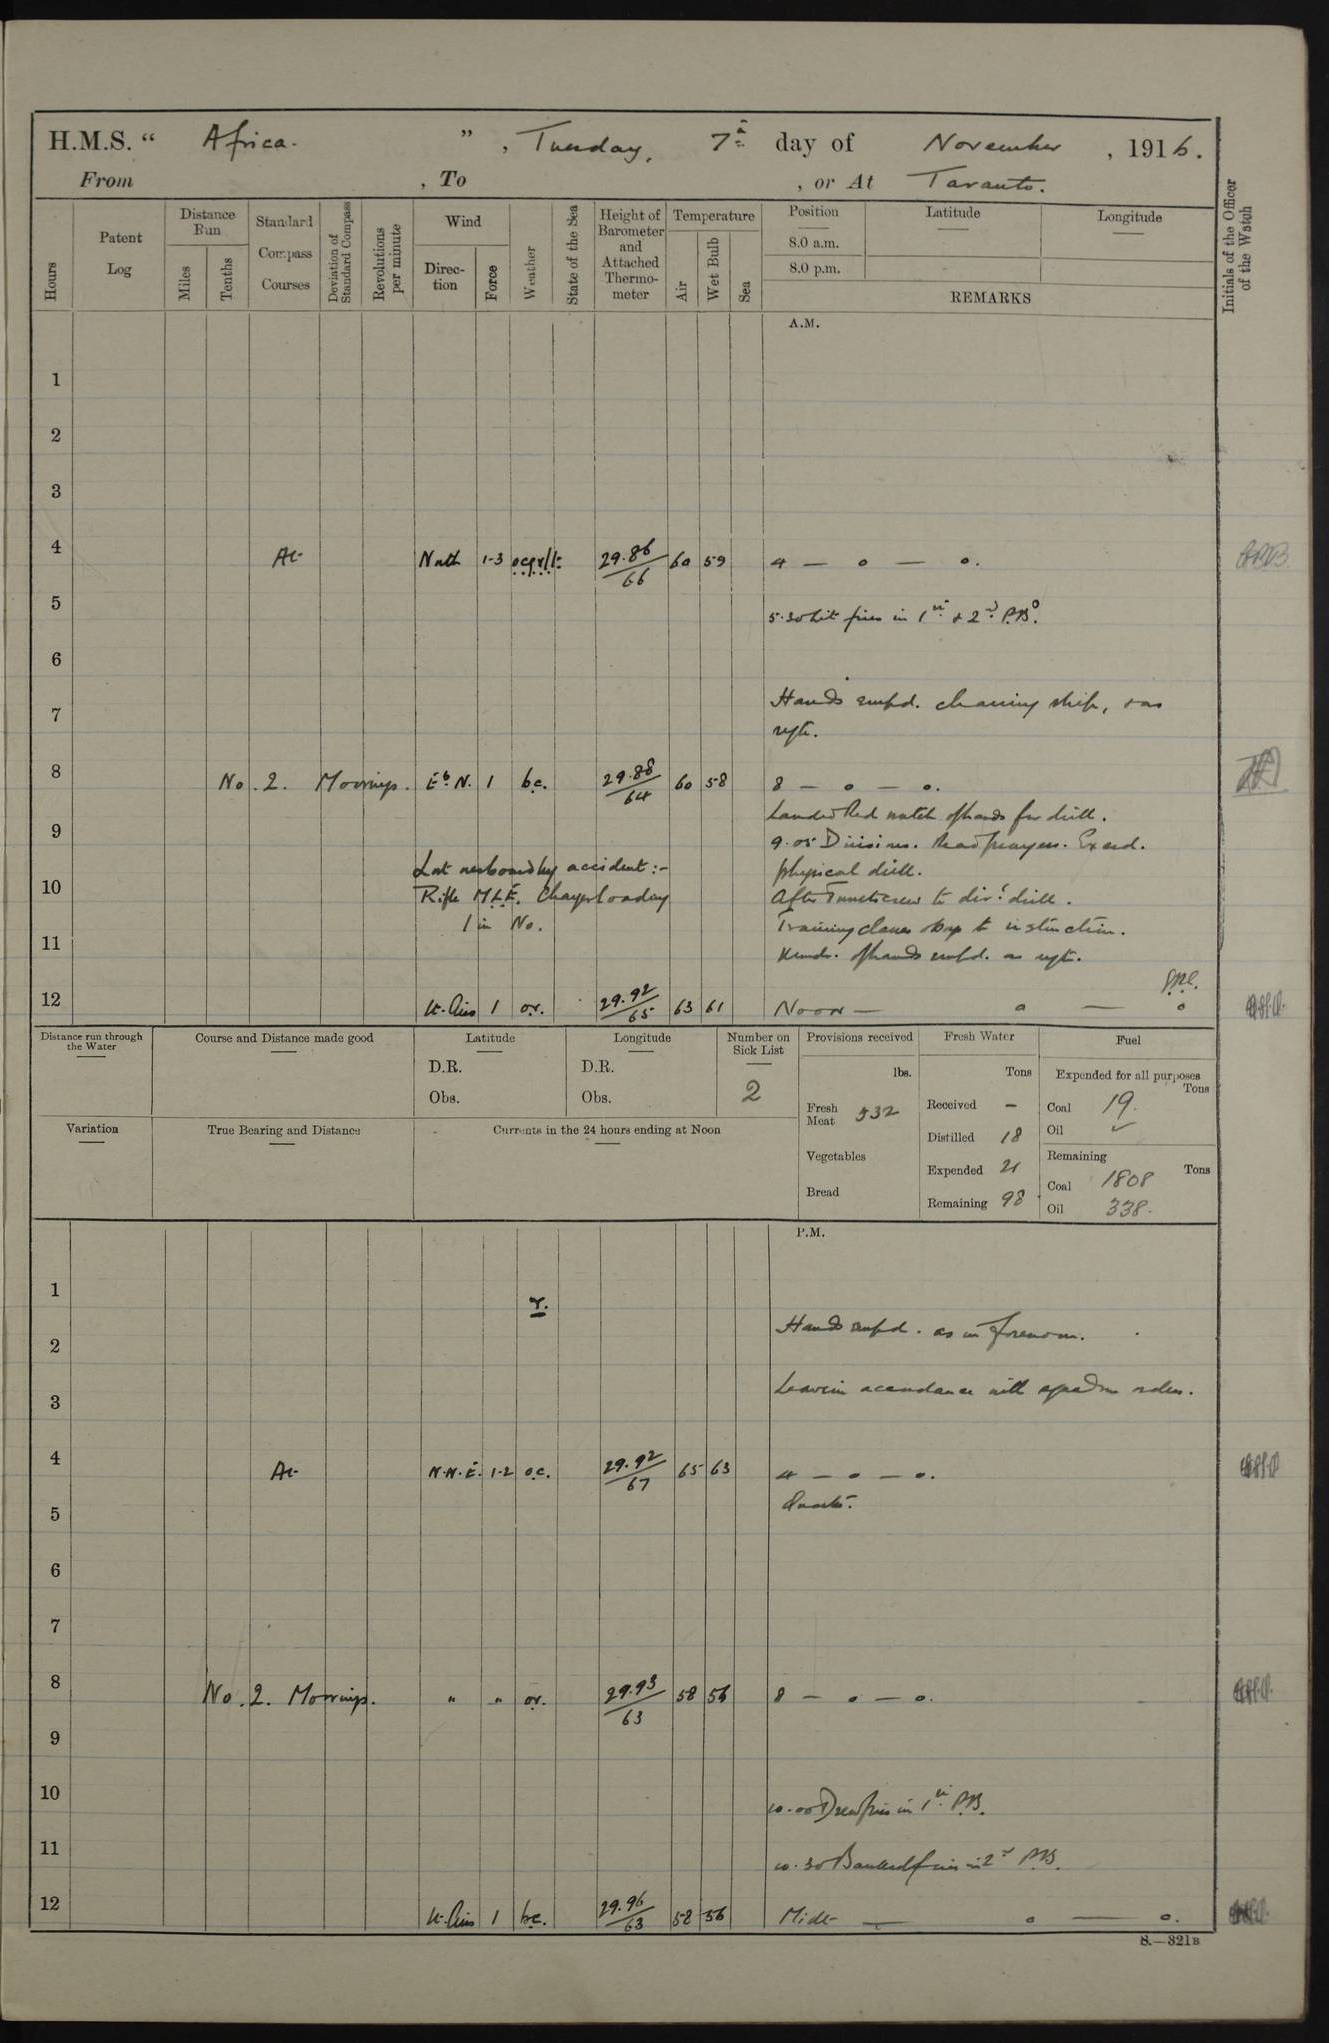 H.M.S. " Africa. ", Tuesday, 7th day of November, 1916.
From , To , or At Taranto.
Hours
Patent Log
Distance Run
Miles
Tenths
Standard Compass Courses
Deviation of Standard Compass
Revolutions per minute
Wind
Direction
Force
Weather
State of the Sea
Height of Barometer and Attached Thermometer
Temperature
Air
Wet Bulb
Sea
Position
8.0 a.m.
8.0 p.m.
Latitude
Longitude
REMARKS
Initials of the Officer of the Watch
A.M.
1
2
3
4 At North 1-3 29.86/66 60 59 4 — o — o.
5 5.30 Lit fires in 1st & 2nd P.B.
6
7 Hands empd. cleaning ship, & as
reqte.
8 No. 2. Moorings. E b N. 1 bc. 29.88/64 60 58 8 — o — o.
Landed Red watch of hands for drill.
9 9.05 Divisions. Read prayers. Exercd.
Lost overboard by accident :- physical drill.
10 Rifle M.L.E. Charger loading After Turrets crew to divl. drill.
1 in No. Training classes & boys to instruction.
11 Remdr. of hands empd. as reqte.
12 Lt. Airs 1 or. 29.92/65 63 61 Noon — o — o
Distance run through the Water
Course and Distance made good
Latitude
D.R.
Obs.
Longitude
D.R.
Obs.
Number on Sick List
2
Provisions received
lbs.
Fresh Meat 532
Vegetables
Bread
Fresh Water
Tons
Received -
Distilled 18
Expended 21
Remaining 98
Fuel
Expended for all purposes
Tons
Coal 19.
Oil
Remaining
Tons
Coal 1808
Oil 338.
Variation
True Bearing and Distance
Currents in the 24 hours ending at Noon
P.M.
1 r.
2 Hands empd. as in forenoon.
3 Leave in accordance with squadron orders.
4 At N.N.E. 1-2 o.c. 29.92/67 65 63 4 — o — o.
5 Quarters.
6
7
8 No. 2. Moorings. " " or. 29.93/63 58 56 8 — o — o.
9
10 10.00 Drew fires in 1st P.B.
11 10.30 Banked fires in 2nd P.B.
12 Lt. Airs 1 bc. 29.96/63 58 56 Midt — o — o.
S.—321B